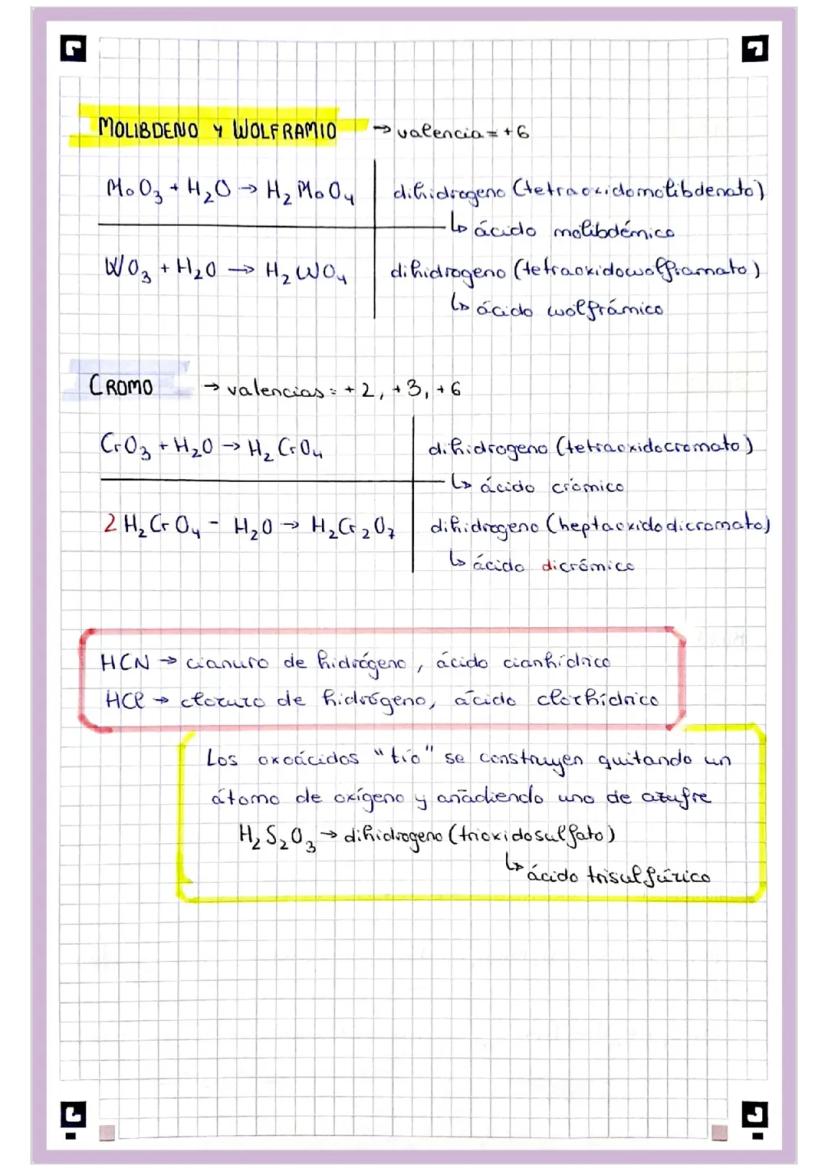 MOLIBDENO Y WOLFRAMIO → valencia = +6
MoO₃ + H₂O → H₂MoO₄
dihidrogeno (tetraoxidomolibdenato)
↳ ácido molibdémico
WO₃ + H₂O → H₂WO₄
dihidrogeno (tetraoxidowolframato)
↳ ácido wolfrámico
CROMO → valencias = +2, +3, +6
CrO₃ + H₂O → H₂CrO₄
dihidrogeno (tetraoxidocromato)
↳ ácido crómico
2 H₂CrO₄ - H₂O → H₂Cr₂O₇
dihidrogeno (heptaoxidodicromato)
↳ ácido dicrómico
HCN → cianuro de hidrógeno, ácido cianhídrico
HCl → cloruro de hidrógeno, ácido clorhídrico
Los oxoácidos "tio" se construyen quitando un
átomo de oxígeno y añadiendo uno de azufre
H₂S₂O₃ → dihidrogeno (trioxidosulfato)
↳ ácido trisulfúrico